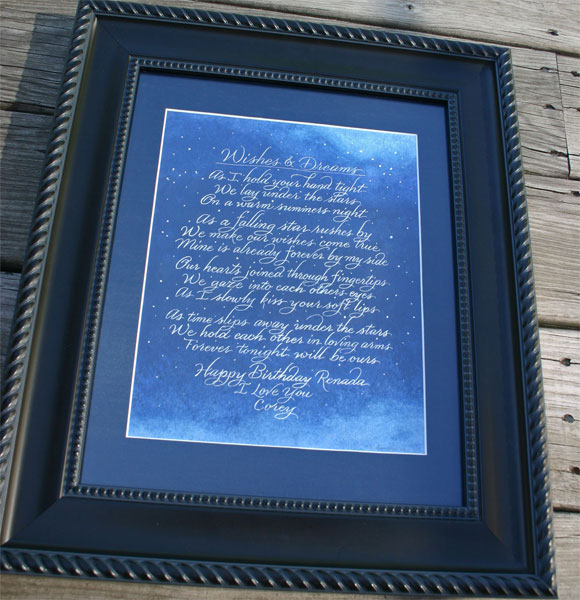 Wishes & Dreams
As I hold your hand tight
We lay under the stars
On a warm summers night
As a falling star rushes by
We make our wishes come true
Mine is already forever by my side
Our hearts joined through fingertips
We gaze into each others eyes
As I slowly kiss your soft lips
As time slips away under the stars
We hold each other in loving arms
Forever tonight will be ours
Happy Birthday Renada
I Love You
Corey